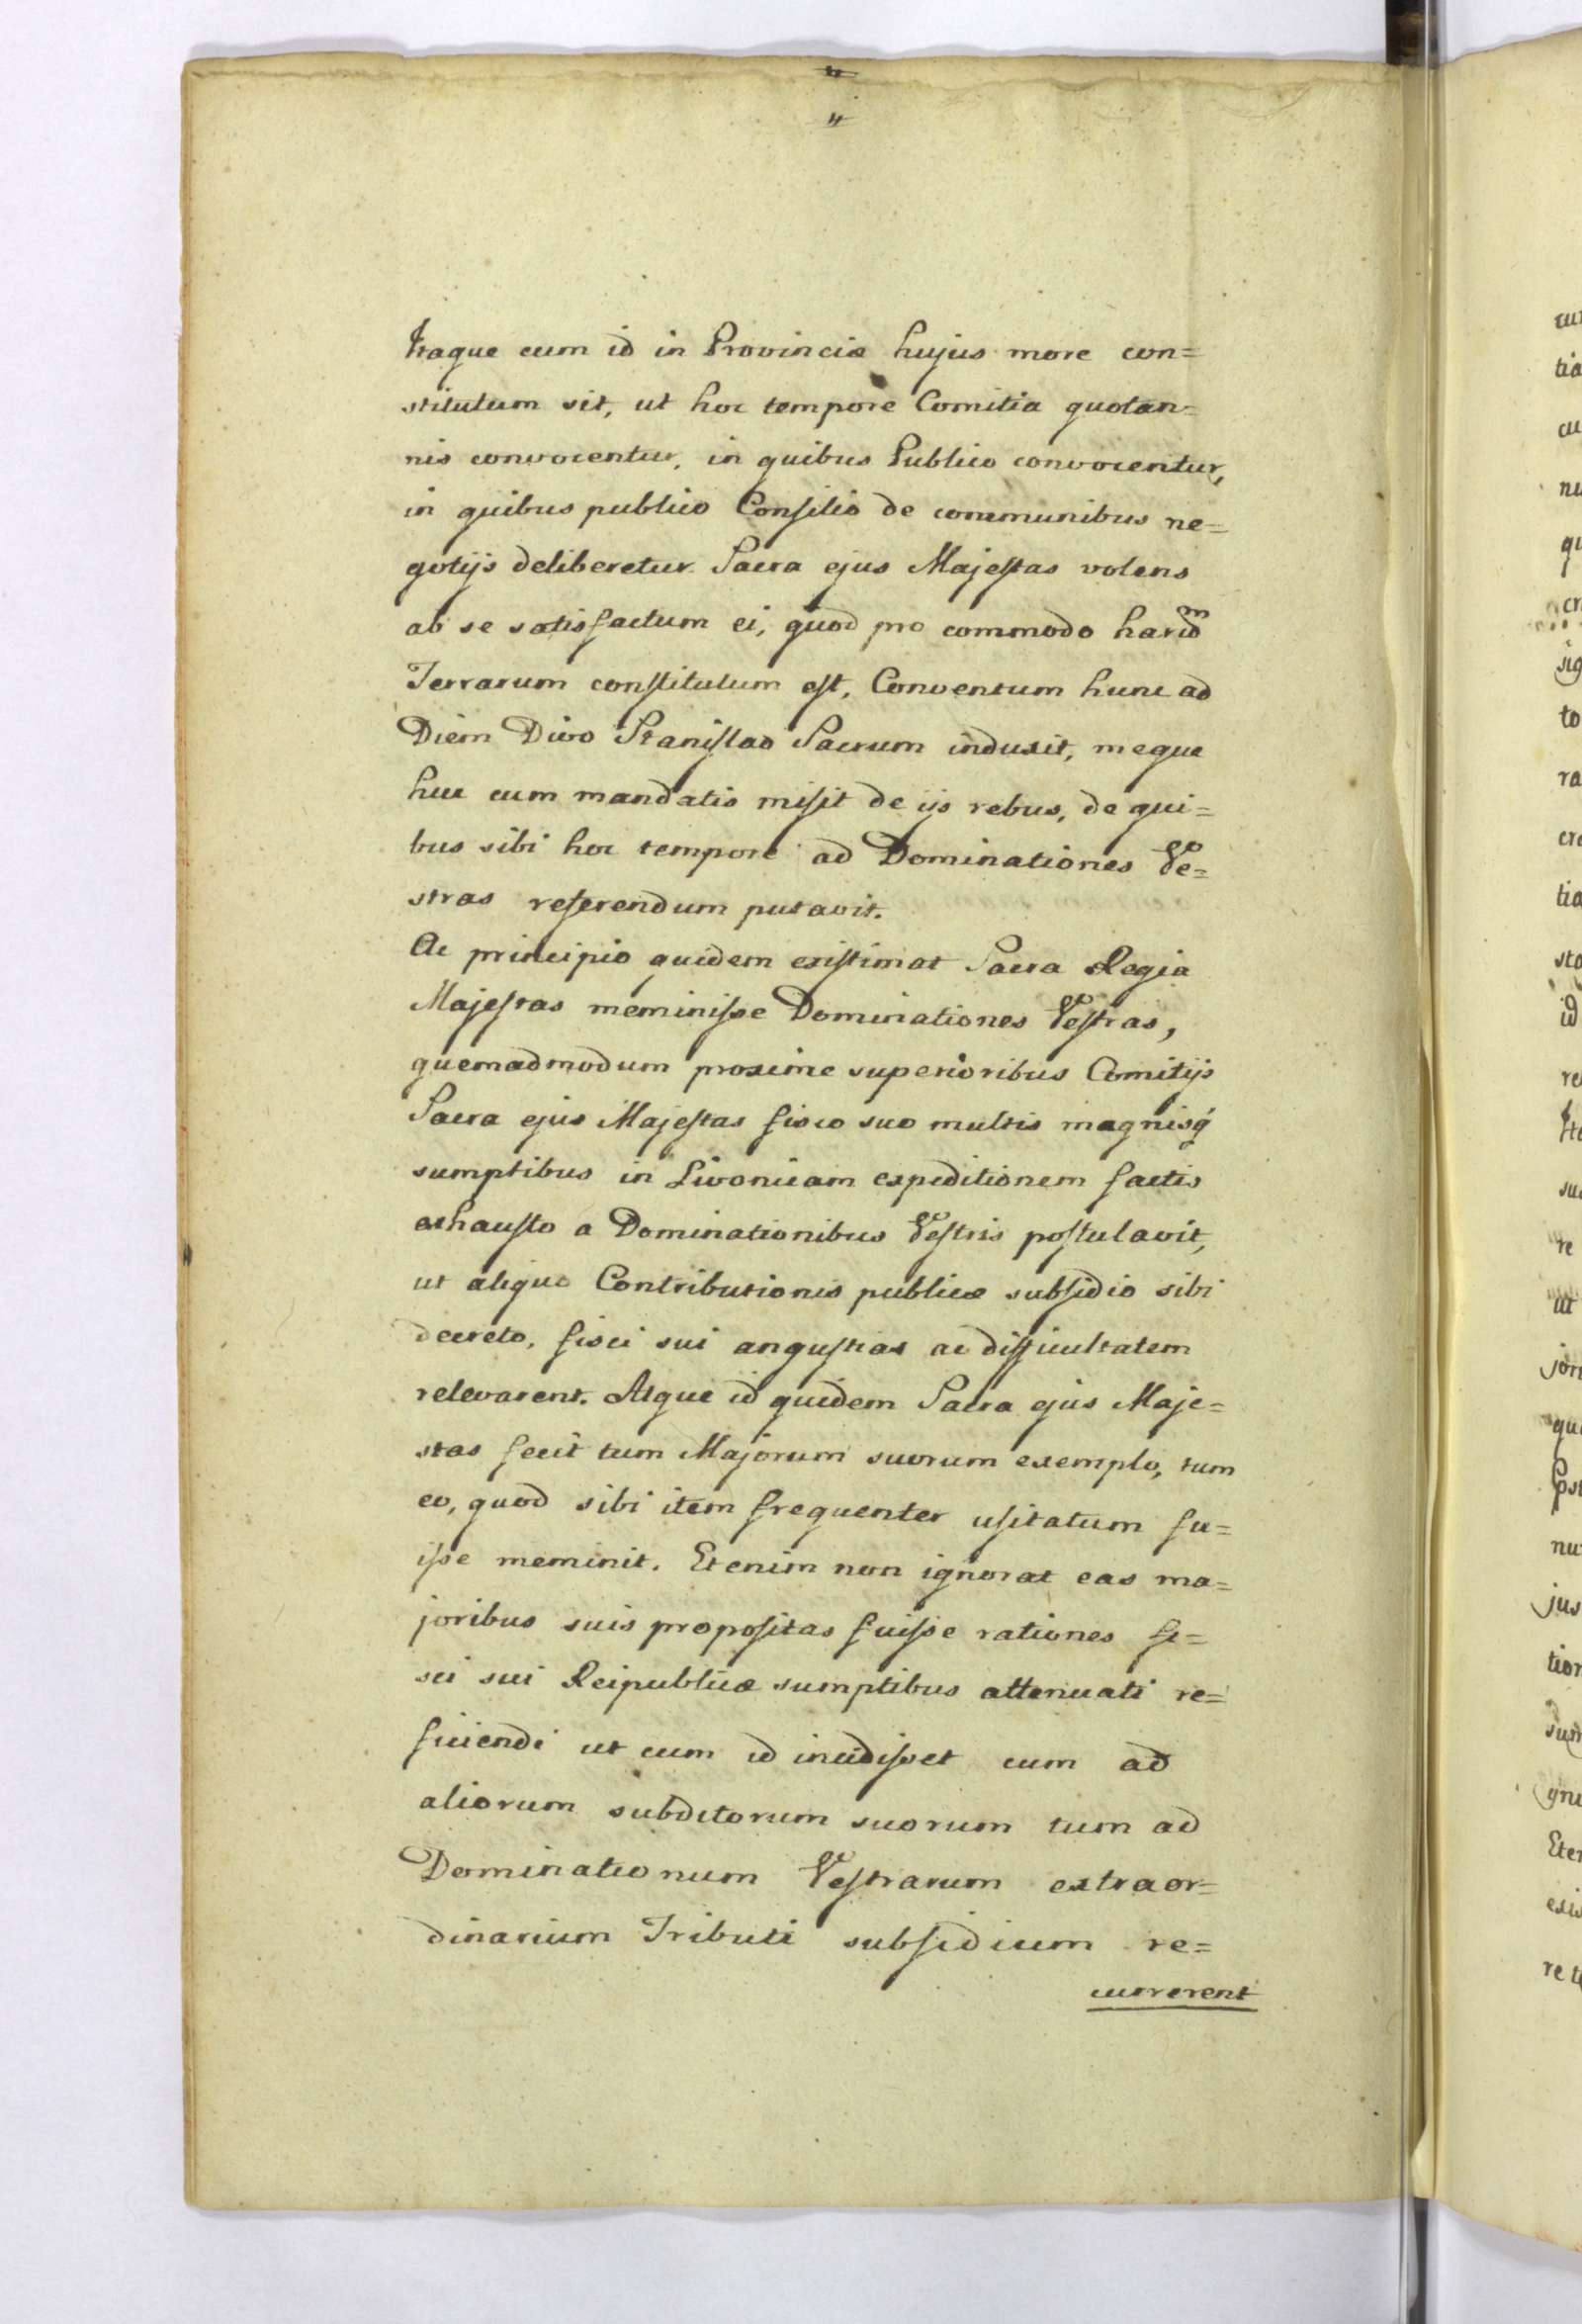 4
4
Itaque cum id in Provinciæ hujus more con=
stitutum sit, ut hoc tempore Comitia quotan=
nis convocentur, in quibus Publico convocentur,
in quibus publico Consilio de communibus ne=
gotijs deliberetur Sacra ejus Majestas volens
ab se satisfactum ei, quod pro commodo harum
Terrarum constitutum est, Conventum hunc ad
Diem Divo Stanislao Sacrum induxit, meque
huc cum mandatis misit de ijs rebus, de qui=
bus sibi hoc tempore ad Dominationes Ve=
stras referendum putavit.
Ac principio quidem existimat Sacra Regia
Majestas meminisse Dominationes Vestras,
quemadmodum proxime superioribus Comitijs
Sacra ejus Majestas fisco suo multis magnisq́
sumptibus in Livonicam expeditionem factis
exhausto a Dominationibus Vestris postulavit,
ut aliquo Contributionis publicæ subsidio sibi
decreto, fisci sui angustias ac difficultatem
relevarent. Atque id quidem Sacra ejus Maje=
stas fecit tum Majorum suorum exemplo, tum
eo, quod sibi item frequenter usitatum fu=
isse meminit. Etenim non ignorat eas ma=
joribus suis propositas fuisse rationes fi=
sci sui Reipublicæ sumptibus attenuati re=
ficiendi ut cum id incidisset cum ad
aliorum subditorum suorum tum ad
Dominationum Vestrarum extraor=
dinarium Tributi subsidium re=
currerent